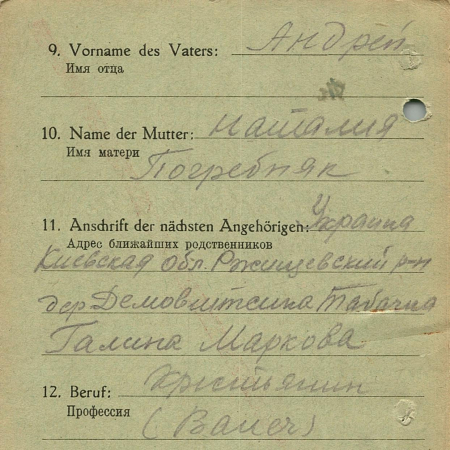 9. Vorname des Vaters: Андрей
Имя отца
10. Name der Mutter: Наталия
Имя матери
Погребняк
11. Anschrift der nächsten Angehörigen: Украина
Адрес ближайших родственников
Киевская обл. Ржищевский р-н
дер Демовштсина Табачна
Галина Маркова
12. Beruf: Христьянин
Профессия
(Bauer)